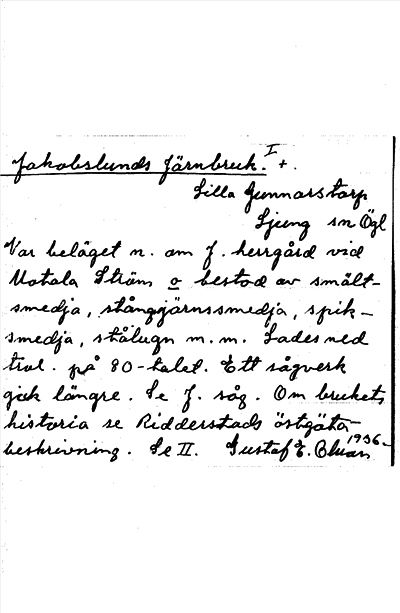 Jakobslunds Järnbruk. I +.
Lilla Gunnarstorp
Ljung sn Ögl
Var beläget n. om J. herrgård vid
Motala Ström o bestod av smält-
smedja, stångjärnssmedja, spik-
smedja, stålugn m.m. Lades ned
trol. på 80-talet. Ett sågverk
gick längre. Se J. såg. Om brukets
historia se Ridderstads östgöta
beskrivning. Se II. Gustaf E.
1936-